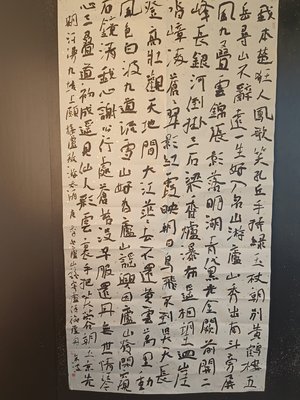 我本楚狂人鳳歌笑孔丘手持綠玉杖朝別黃鶴樓五
岳尋仙不辭遠一生好入名山游廬山秀出南斗旁屏
風九疊雲錦張影落明湖青黛光金闕前開二
峰長銀河倒掛三石梁香爐瀑布遙相望迴崖
沓嶂凌蒼蒼翠影紅霞映朝日鳥飛不到吳天長
登高壯觀天地間大江茫茫去不還黃雲萬里動
風色白波九道流雪山好為廬山謠興因廬山發閑窺
石鏡清我心謝公行處蒼苔沒早服還丹無世情琴
心三疊道初成遙見仙人彩雲裏手把芙蓉朝玉京先
期汗漫九垓上願接盧敖游太清 廬山謠寄盧侍御虛舟